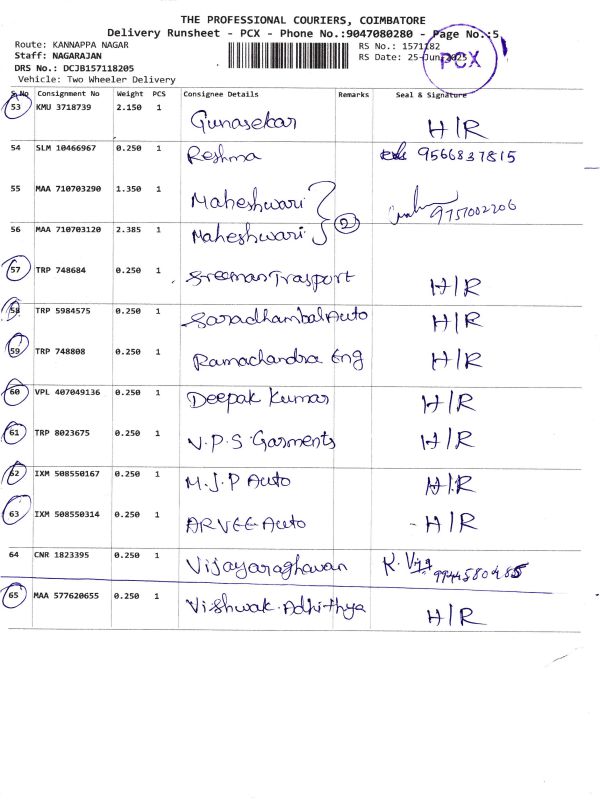 THE PROFESSIONAL COURIERS, COIMBATORE
Delivery Runsheet - PCX - Phone No.:9047080280 - Page No.:5
Route: KANNAPPA NAGAR RS No.: 1571182
Staff: NAGARAJAN RS Date: 25-Jun-2025
PCX
DRS No.: DCJB157118205
Vehicle: Two Wheeler Delivery
S.No Consignment No Weight PCS Consignee Details Remarks Seal & Signature
53 KMU 3718739 2.150 1 Gunasekar H/R
54 SLM 10466967 0.250 1 Reshma 9566837815
55 MAA 710703290 1.350 1 Maheshwari 9757002206
2
56 MAA 710703120 2.385 1 Maheshwari
57 TRP 748684 0.250 1 Sreeman Trasport H/R
58 TRP 5984575 0.250 1 Saradhambal Auto H/R
59 TRP 748808 0.250 1 Ramachandra Eng H/R
60 VPL 407049136 0.250 1 Deepak Kumar H/R
61 TRP 8023675 0.250 1 V.P.S Garments H/R
62 IXM 508550167 0.250 1 M.J.P Auto H/R
63 IXM 508550314 0.250 1 ARVEE Auto - H/R
64 CNR 1823395 0.250 1 Vijayaraghavan K. 9944580485
65 MAA 577620655 0.250 1 Vishwak.Adhithya H/R